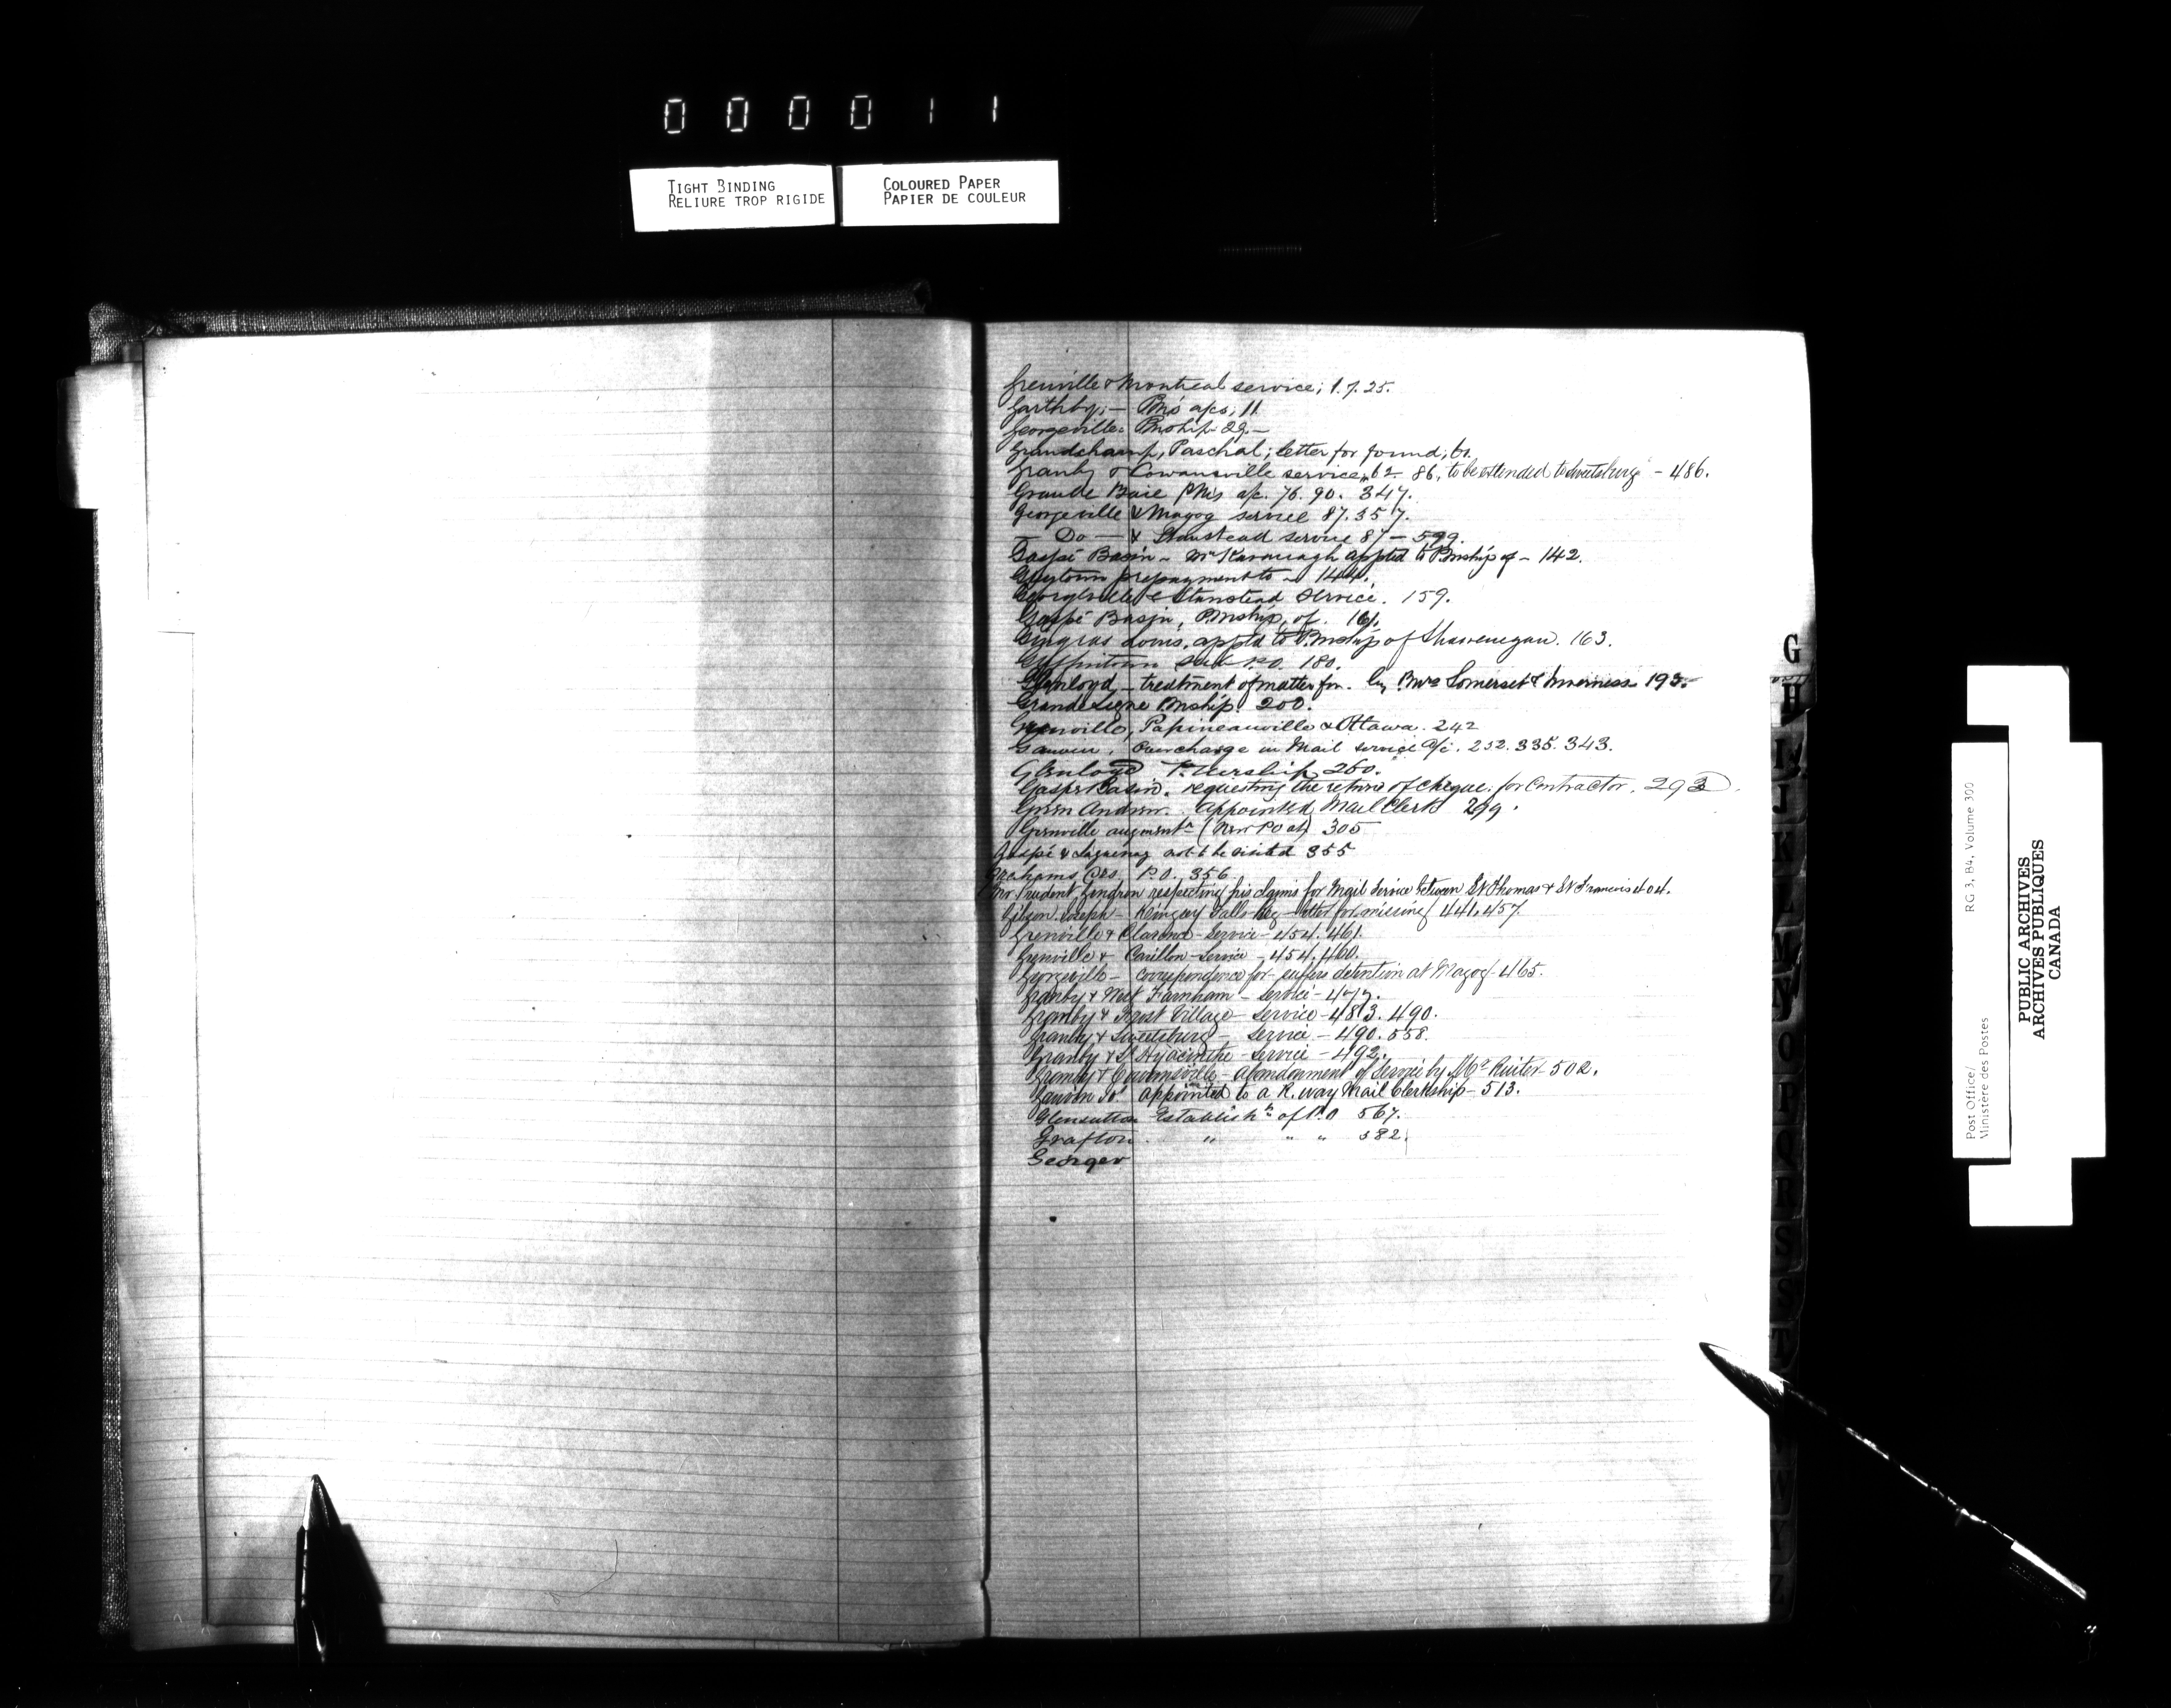 000011
TIGHT BINDING
RELIURE TROP RIGIDE
COLOURED PAPER
PAPIER DE COULEUR
Grenville & Montreal service; 1.7.25.
Garthby; — PM's a/cs; 11
Georgeville: PMship 29.—
Grandchamp, Paschal; letter for found;
Granby & Cowansville service, 62. 86. to be extended to Sweetsburg - 486.
Grande Baie PM's a/c. 76. 90. 347.
Georgeville & Magog service 87. 357.
— Do — & Stanstead service 87 - 599.
Gaspé Basin - Mr Kavanagh apptd to PMship of - 142.
prepayment to - 144.
Georgeville & Stanstead Service. 159.
Gaspé Basin, PMship of. 161.
Gingras apptd to PMship of Shawenegan. 163.
Griffintown Sub P.O. 180.
Glenloyd - treatment of matter for. by PMrs Somerset & Inverness 193.
Grande Ligne PMship. 200.
Grenville, Papineauville & Ottawa. 242
Gauvin, Overcharge in Mail service a/c. 252. 335. 343.
Glenloyd P.Mership 260.
Gaspé Basin. requesting the return of cheque for Contractor. 293
Green Andrew. Appointed Mail Clerk 299.
Grenville augmentn (New PO at) 305
Gaspé & Saguenay not to be visited 355
Grahams P.O. 356
Mr. Prudent Gendron respecting his claims for Mail Service between St Thomas & St Francois 404.
Gibson Joseph - Kingsey Falls Reg - letter for missing 441. 457.
Grenville & Clarence - Service - 454. 461.
Grenville & Carillon - Service - 454. 460.
Georgeville - correspondence for - suffers detention at Magog - 465.
Granby & West Farnham - Service - 477.
Granby & Frost Village - Service - 483. 490.
Granby & Sweetsburg - Service - 490. 558.
Granby & St Hyacinthe - Service - 492.
Granby & Cowansville - abandonment of Service by Mr Ruiter 502.
Gauvin appointed to a R.way Mail Clerkship - 513.
Glensutton Establisht of P.O 567.
Grafton " " " 582.
Georgev
G
H
I
J
K
L
M
N
O
P
Q
R
S
S
T
W
Y
Z
Post Office/
Ministère des Postes
RG 3, B4, Volume 300
PUBLIC ARCHIVES
ARCHIVES PUBLIQUES
CANADA